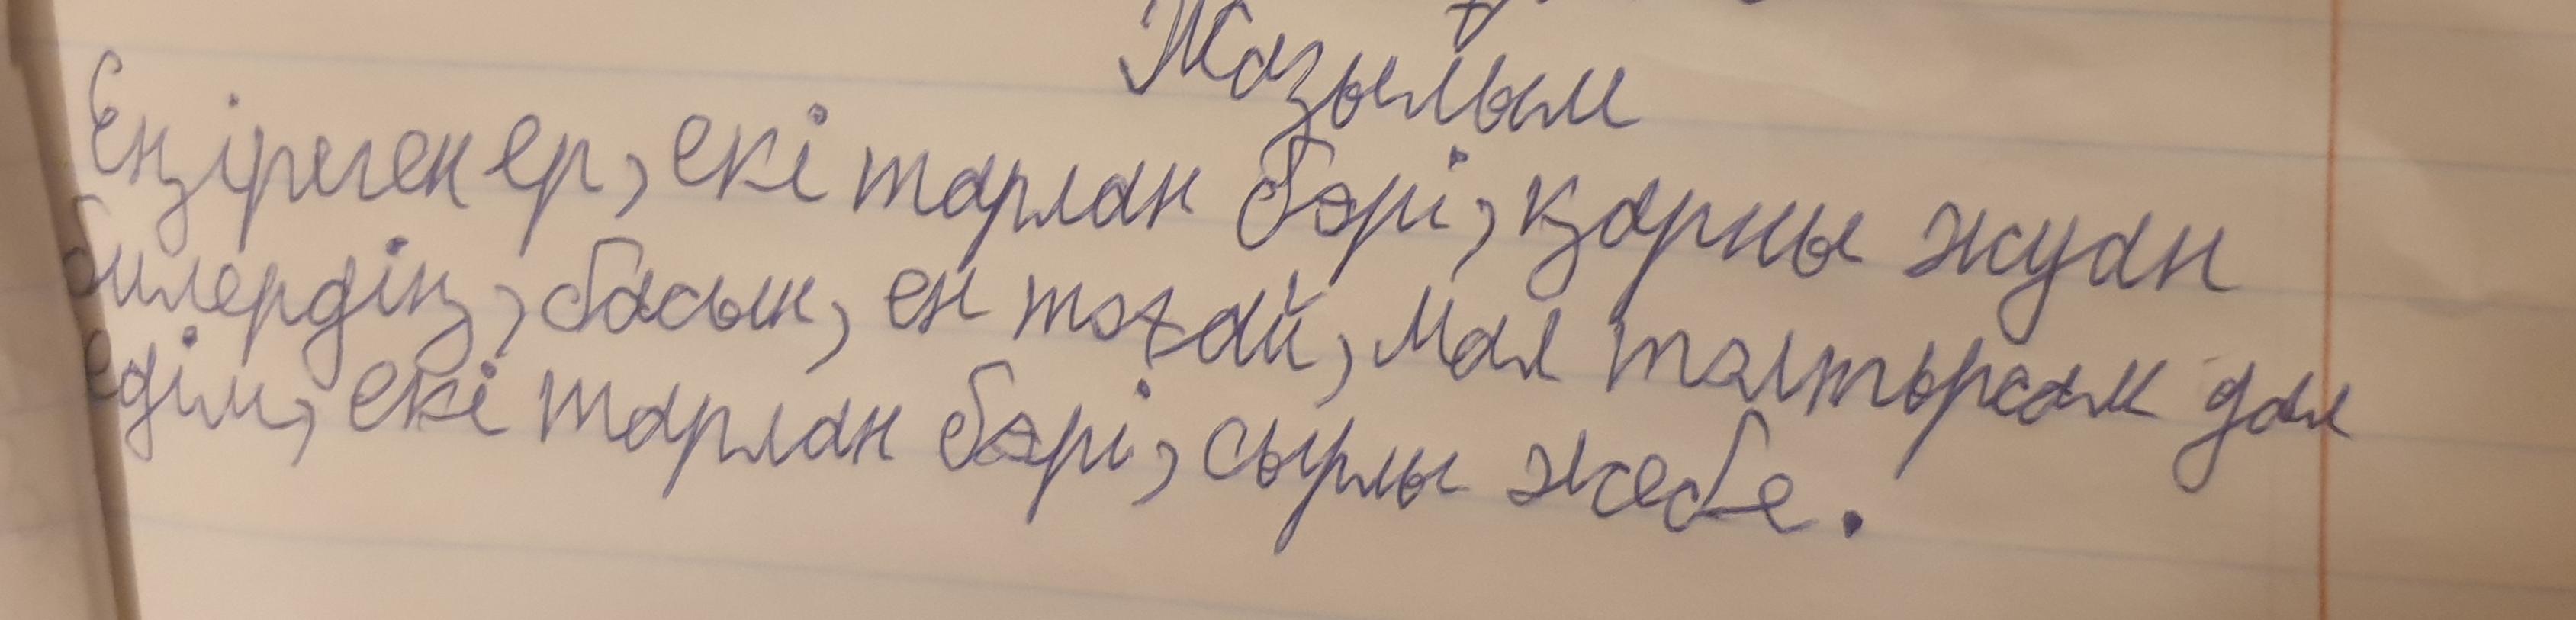 Жазылым
Еңіреген ер, екі тарлан бөрі, қарны жуан
билердің, басын, ен тоғай, мал толтырсам дал
едім, екі тарлан бөрі, сырлы жебе.